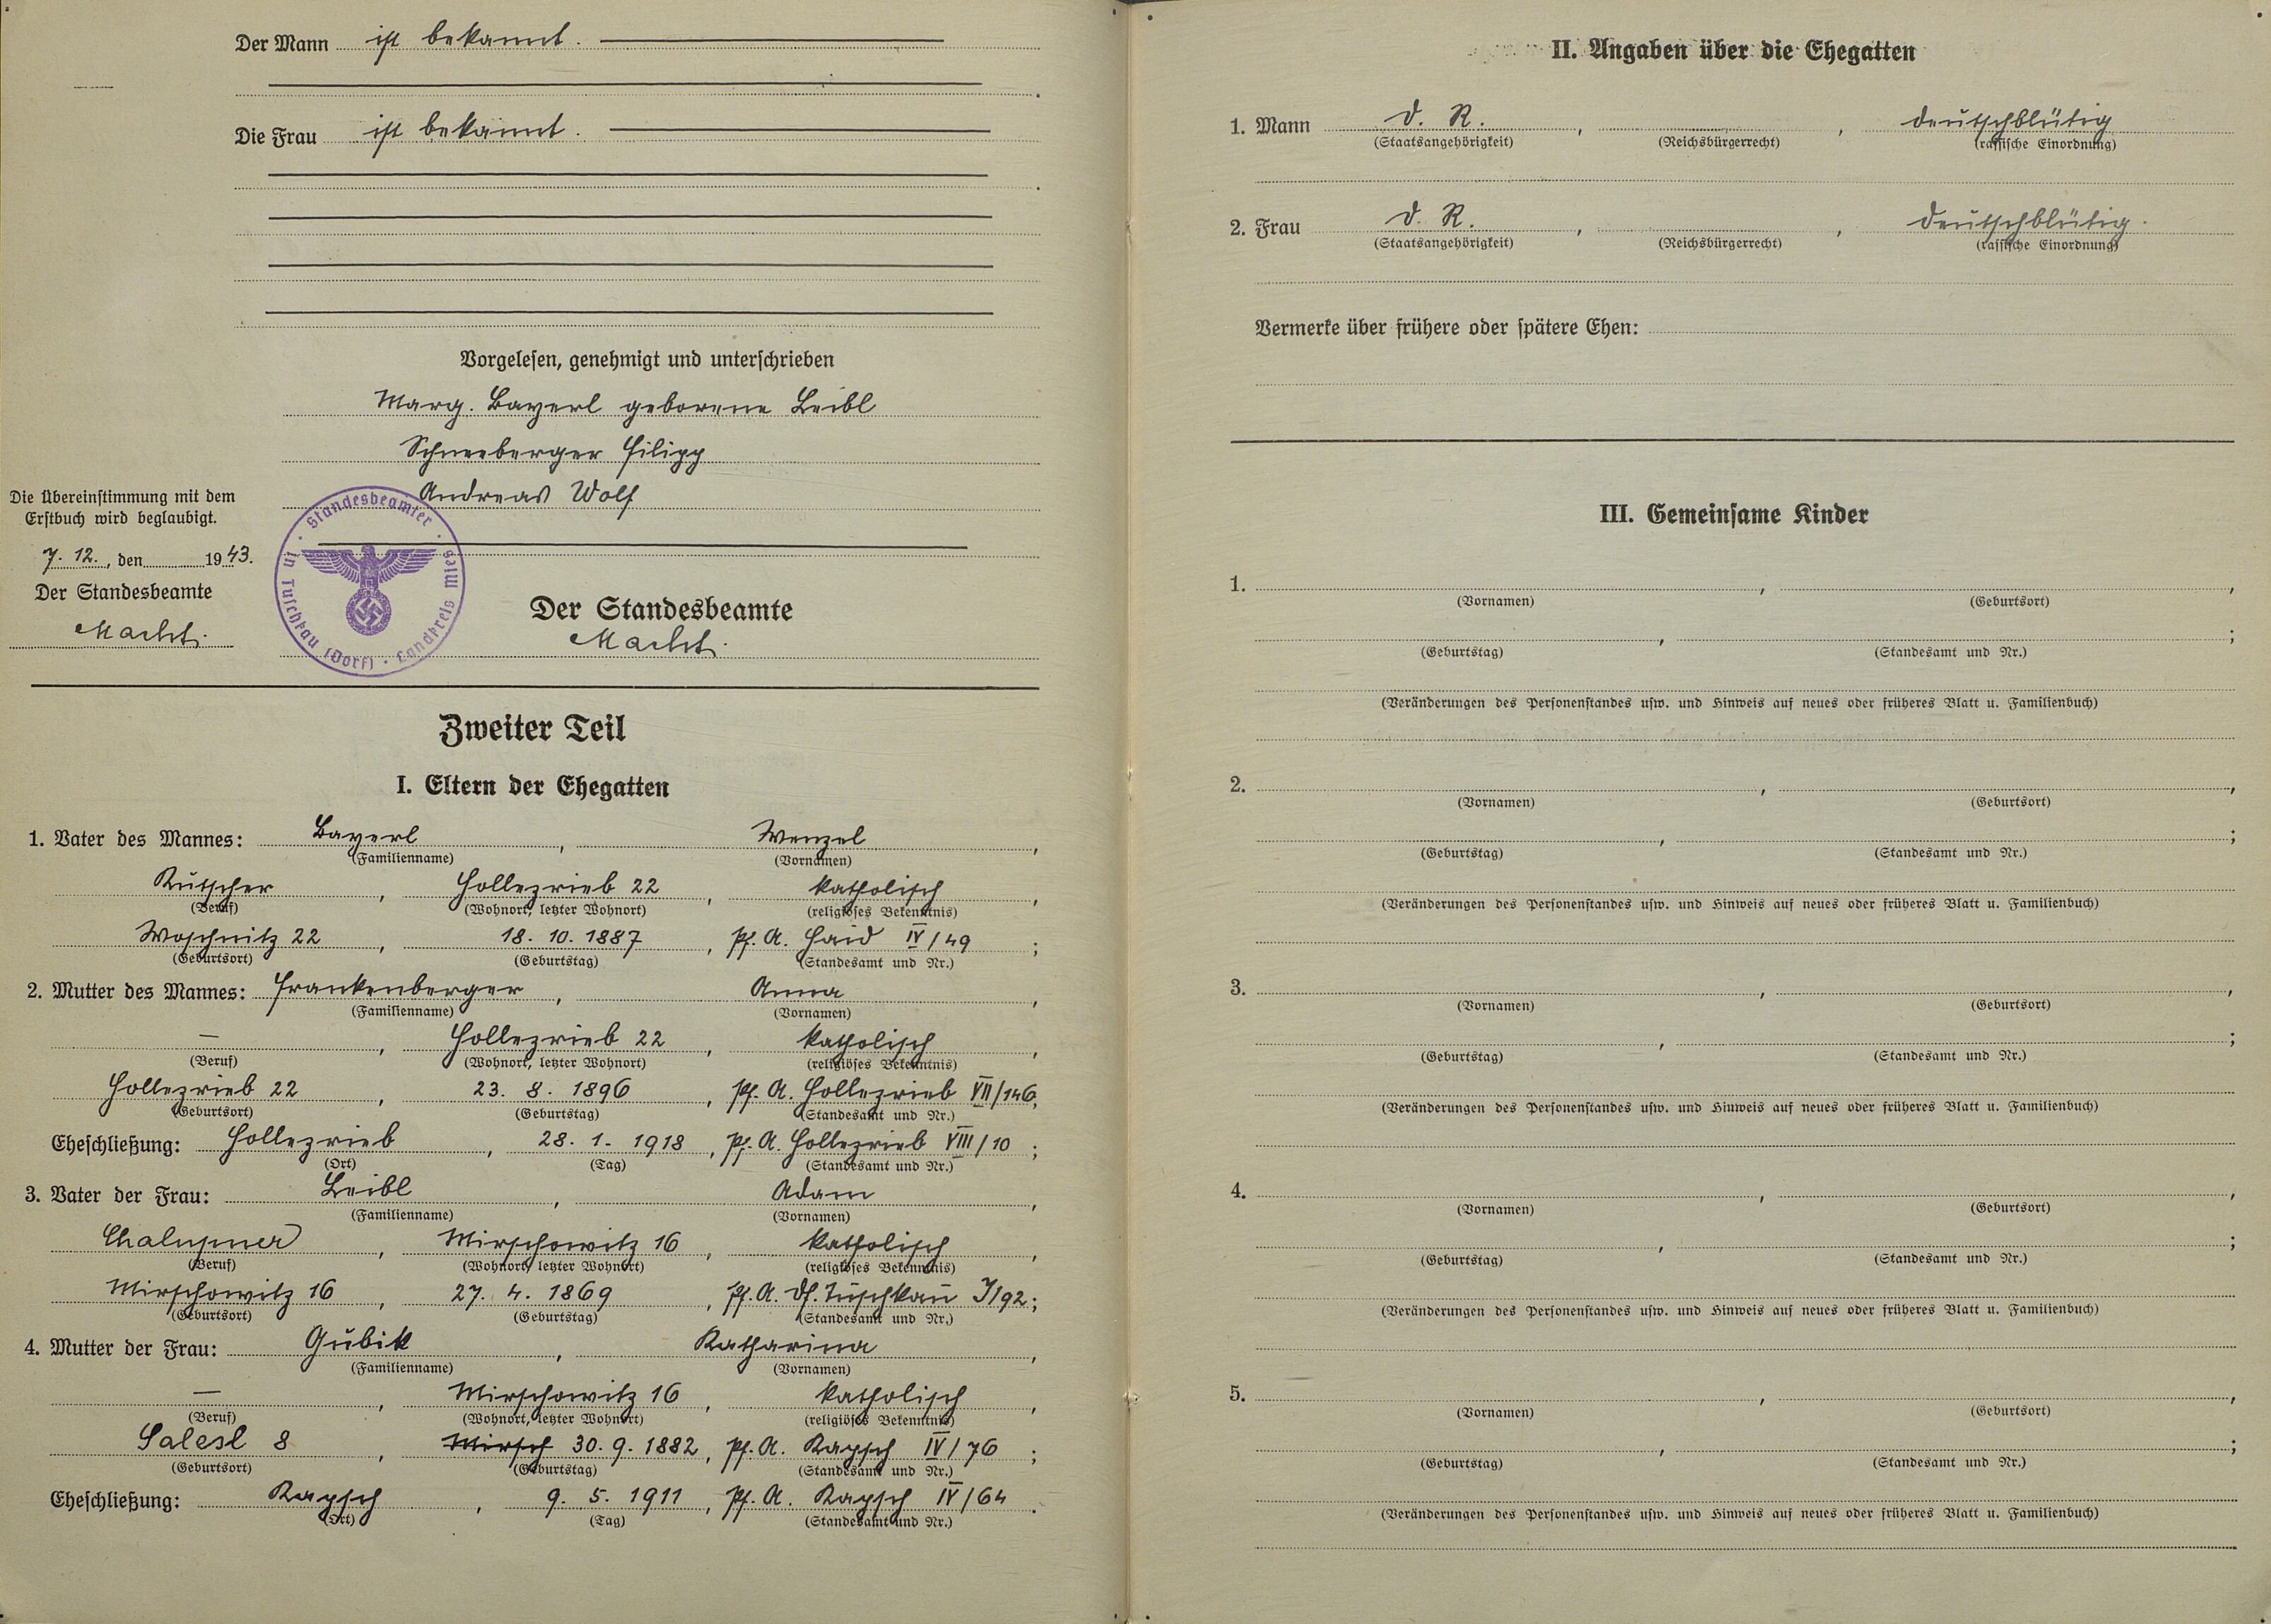 Der Mann ist bekannt.
Die Frau ist bekannt.
Vorgelesen, genehmigt und unterschrieben
Marg. Bayerl geborene Leibl
Schneeberger Filipp
Andreas Wolf
Die Übereinstimmung mit dem
Erstbuch wird beglaubigt.
7. 12., den 1943.
Der Standesbeamte
Macht.
Standesbeamter · in Tuschkau (Dorf) · Landkreis Mies
Der Standesbeamte
Macht.
Zweiter Teil
I. Eltern der Ehegatten
1. Vater des Mannes: Bayerl, Wenzel,
(Familienname) (Vornamen)
Kutscher, Hollezrieb 22, katholisch,
(Beruf) (Wohnort, letzter Wohnort) (religiöses Bekenntnis)
Woschnitz 22, 18. 10. 1887, Pf. A. Haid IV/49;
(Geburtsort) (Geburtstag) (Standesamt und Nr.)
2. Mutter des Mannes: Frankenberger, Anna,
(Familienname) (Vornamen)
—, Hollezrieb 22, katholisch,
(Beruf) (Wohnort, letzter Wohnort) (religiöses Bekenntnis)
Hollezrieb 22, 23. 8. 1896, Pf. A. Hollezrieb VII/146;
(Geburtsort) (Geburtstag) (Standesamt und Nr.)
Eheschließung: Hollezrieb, 28. 1. 1918, Pf. A. Hollezrieb VIII/10;
(Ort) (Tag) (Standesamt und Nr.)
3. Vater der Frau: Leibl, Adam,
(Familienname) (Vornamen)
Chalupner, Mirschowitz 16, katholisch,
(Beruf) (Wohnort, letzter Wohnort) (religiöses Bekenntnis)
Mirschowitz 16, 27. 4. 1869, Pf. A. Df. Tuschkau I/92;
(Geburtsort) (Geburtstag) (Standesamt und Nr.)
4. Mutter der Frau: Gubik, Katharina,
(Familienname) (Vornamen)
—, Mirschowitz 16, katholisch,
(Beruf) (Wohnort, letzter Wohnort) (religiöses Bekenntnis)
Salesl 8, Mirsch 30. 9. 1882, Pf. A. Kapsch IV/76;
(Geburtsort) (Geburtstag) (Standesamt und Nr.)
Eheschließung: Kapsch, 9. 5. 1911, Pf. A. Kapsch IV/64.
(Ort) (Tag) (Standesamt und Nr.)
II. Angaben über die Ehegatten
1. Mann D. R., , deutschblütig
(Staatsangehörigkeit) (Reichsbürgerrecht) (rassische Einordnung)
2. Frau D. R., , deutschblütig.
(Staatsangehörigkeit) (Reichsbürgerrecht) (rassische Einordnung)
Vermerke über frühere oder spätere Ehen:
III. Gemeinsame Kinder
1. , ,
(Vornamen) (Geburtsort)
, ;
(Geburtstag) (Standesamt und Nr.)
(Veränderungen des Personenstandes usw. und Hinweis auf neues oder früheres Blatt u. Familienbuch)
2. , ,
(Vornamen) (Geburtsort)
, ;
(Geburtstag) (Standesamt und Nr.)
(Veränderungen des Personenstandes usw. und Hinweis auf neues oder früheres Blatt u. Familienbuch)
3. , ,
(Vornamen) (Geburtsort)
, ;
(Geburtstag) (Standesamt und Nr.)
(Veränderungen des Personenstandes usw. und Hinweis auf neues oder früheres Blatt u. Familienbuch)
4. , ,
(Vornamen) (Geburtsort)
, ;
(Geburtstag) (Standesamt und Nr.)
(Veränderungen des Personenstandes usw. und Hinweis auf neues oder früheres Blatt u. Familienbuch)
5. , ,
(Vornamen) (Geburtsort)
, ;
(Geburtstag) (Standesamt und Nr.)
(Veränderungen des Personenstandes usw. und Hinweis auf neues oder früheres Blatt u. Familienbuch)